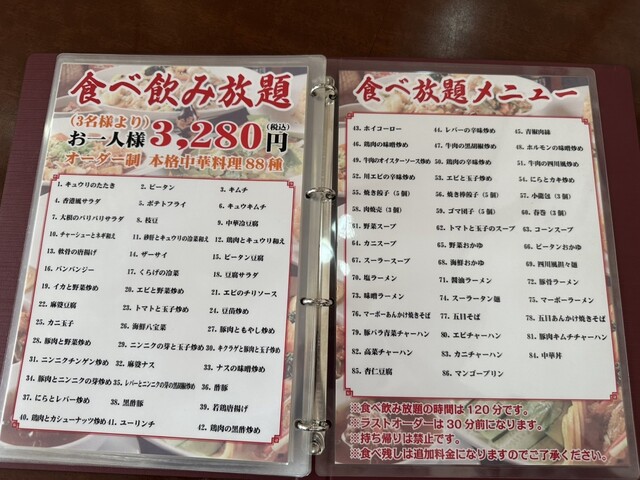 食べ飲み放題
(3名様より)
お一人様 3,280円 (税込)
オーダー制 本格中華料理88種
1. キュウリのたたき 2. ピータン 3. キムチ
4. 香港風サラダ 5. ポテトフライ 6. キュウキムチ
7. 大根のパリパリサラダ 8. 枝豆 9. 中華冷豆腐
10. チャーシューとネギ和え 11. 砂肝とキュウリの冷菜和え 12. 鶏肉とキュウリ和え
13. 軟骨の唐揚げ 14. ザーサイ 15. ピータン豆腐
16. バンバンジー 17. くらげの冷菜 18. 豆腐サラダ
19. イカと野菜炒め 20. エビと野菜炒め 21. エビのチリソース
22. 麻婆豆腐 23. トマトと玉子炒め 24. 豆苗炒め
25. カニ玉子 26. 海鮮八宝菜 27. 豚肉ともやし炒め
28. 豚肉と野菜炒め 29. ニンニクの芽と玉子炒め 30. キクラゲと豚肉と玉子炒め
31. ニンニクチンゲン炒め 32. 麻婆ナス 33. ナスの味噌炒め
34. 豚肉とニンニクの芽炒め 35. レバーとニンニクの芽の黒胡椒炒め 36. 酢豚
37. にらとレバー炒め 38. 黒酢豚 39. 若鶏唐揚げ
40. 鶏肉とカシューナッツ炒め 41. ユーリンチ 42. 鶏肉の黒酢炒め
食べ放題メニュー
43. ホイコーロー 44. レバーの辛味炒め 45. 青椒肉絲
46. 鶏肉の味噌炒め 47. 牛肉の黒胡椒炒め 48. ホルモンの味噌炒め
49. 牛肉のオイスターソース炒め 50. 鶏肉の辛味炒め 51. 牛肉の四川風炒め
52. 川エビの辛味炒め 53. エビと玉子炒め 54. にらとカキ炒め
55. 焼き餃子 (5個) 56. 焼き棒餃子 (5個) 57. 小籠包 (3個)
58. 肉焼売 (3個) 59. ゴマ団子 (5個) 60. 春巻 (3個)
61. 野菜スープ 62. トマトと玉子のスープ 63. コーンスープ
64. カニスープ 65. 野菜おかゆ 66. ピータンおかゆ
67. スーラースープ 68. 海鮮おかゆ 69. 四川風担々麺
70. 塩ラーメン 71. 醤油ラーメン 72. 豚骨ラーメン
73. 味噌ラーメン 74. スーラータン麺 75. マーボーラーメン
76. マーボーあんかけ焼きそば 77. 五目そば 78. 五目あんかけ焼きそば
79. 豚バラ青菜チャーハン 80. エビチャーハン 81. 豚肉キムチチャーハン
82. 高菜チャーハン 83. カニチャーハン 84. 中華丼
85. 杏仁豆腐 86. マンゴープリン
※食べ飲み放題の時間は120分です。
※ラストオーダーは30分前になります。
※持ち帰りは禁止です。
※食べ残しは追加料金になりますのでご了承ください。